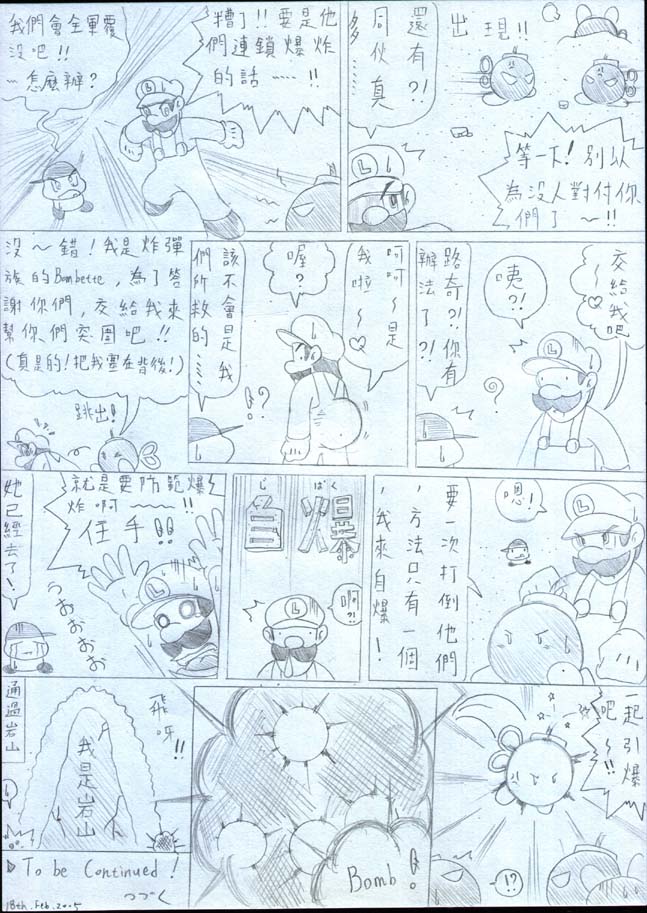 出現!!
還有?!
同伙真
多……
等一下!別以
為沒人對付你
們了~!!
糟了!!要是他
們連鎖爆炸
的話……!!
我們會全軍覆
沒吧!!
~怎麼辦?
交給我吧
~♡
咦?!
?
L
路奇?!你有
辦法了?!
呵呵~是
我啦~♡
喔?
!?
該不會是我
們所救的……
沒~錯!我是炸彈
族的Bombette,為了答
謝你們,交給我來
幫你們突圍吧!!
(真是的!把我塞在背後!)
跳出!
嗯!
L
要一次打倒他們
,方法只有一個
,我來自爆!
じばく
自爆
啊?!
L
就是要防範爆
炸啊~~!!
住手!!
うおおおお
L
她已經去了!
一起引爆
吧~!!
!?
Bomb!
飛呀!!
我是岩山
通過岩山
To be Continued!
つづく
18th. Feb. 2005